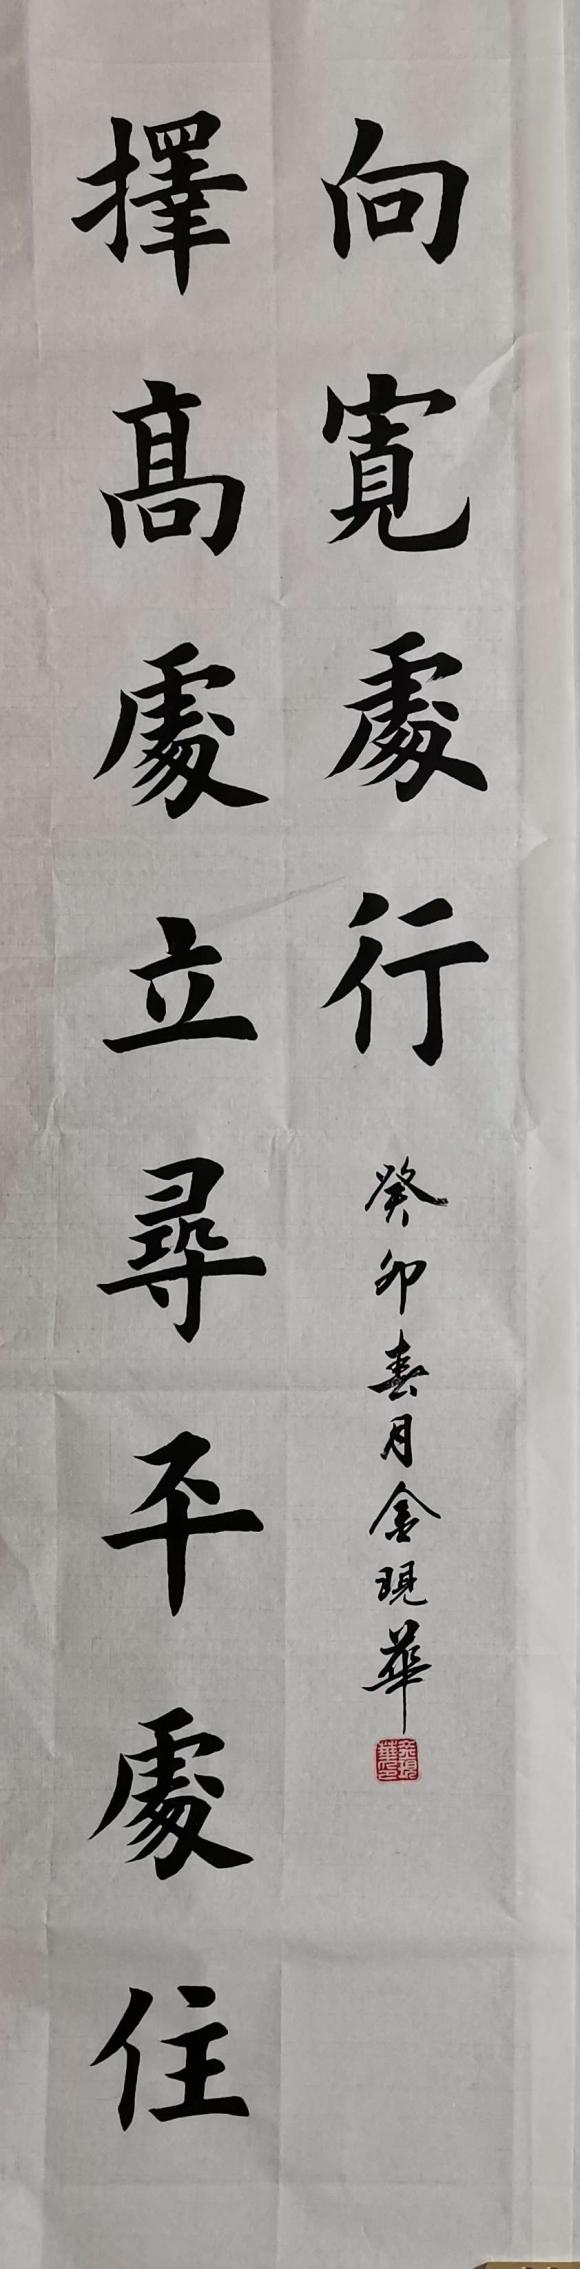 擇高處立尋平處住
向寬處行
癸卯春月金現華
金現華印